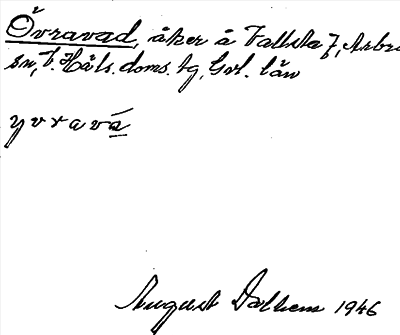 Övravad, åker å Vallsta 7, Arbrå
sn, V. Häls. doms. tg, Gvl. län
yvravá
August Dalhem 1946